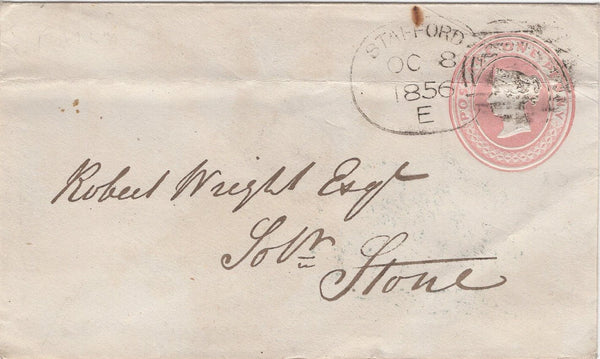 STAFFORD
OC 8
1856
E
POSTAGE ONE PENNY
Robert Wright Esqr
Solr
Stone